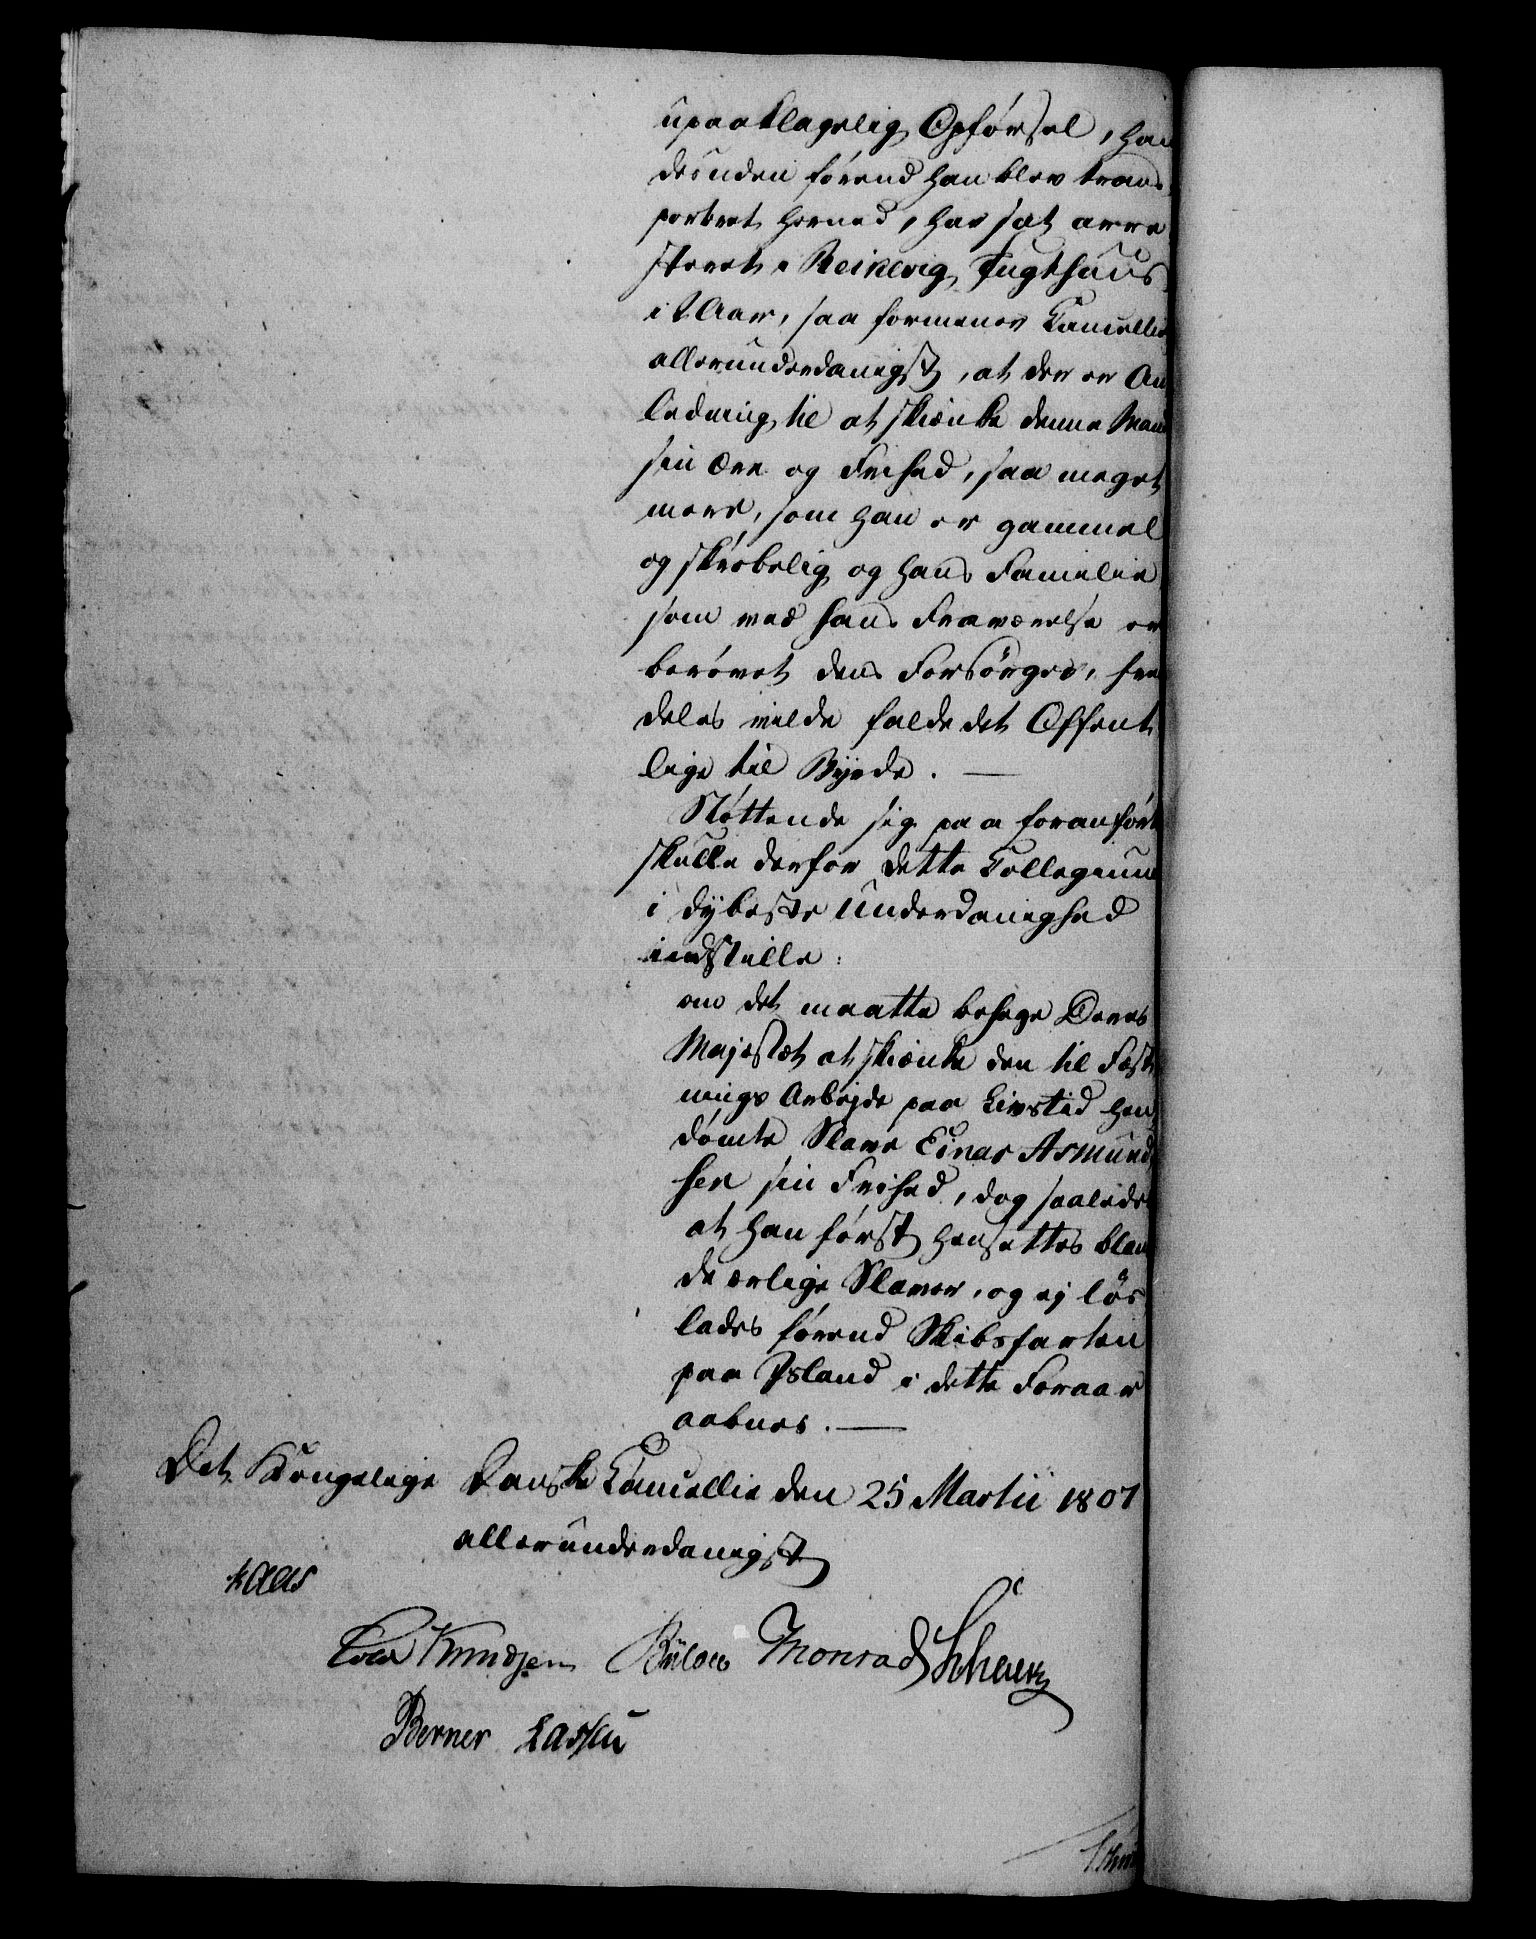 upaaklagelig Opførsel, han
desuden førend han blev trans
porteret herned, har sat arre
steret i Reikevig Tugthuus
i 2 Aar, saa formener Cancellie
allerunderdanigst, at der er An
ledning til at skienke denne Mand
sin Ære og Frihed, saa meget
mere, som han er gammel
og skrøbelig og hans Familie
som ved hans Fraværelse er
berøvet dens Forsørger,
deles vilde falde det Offent
lige til Byrde. —
Støttende sig paa foranførte
skulle derfor dette Collegium
i dybeste Underdanighed
indstille:
om det maatte behage Deres
Majestæt at skienke den til Fæst
nings Arbejde paa Livstid hen
dømte Slave Einar Asmund
sen sin Frihed, dog saaledes
at han først hensættes blandt
de ærlige Slaver, og ej løs
lades førend Skibsfarten
paa Island i dette Foraar
aabnes. —
Det Kongelige Danske Cancellie den 25 Martii 1807
allerunderdanigst
Kaas
Knudsen Bülow Monrad
Berner Lassen